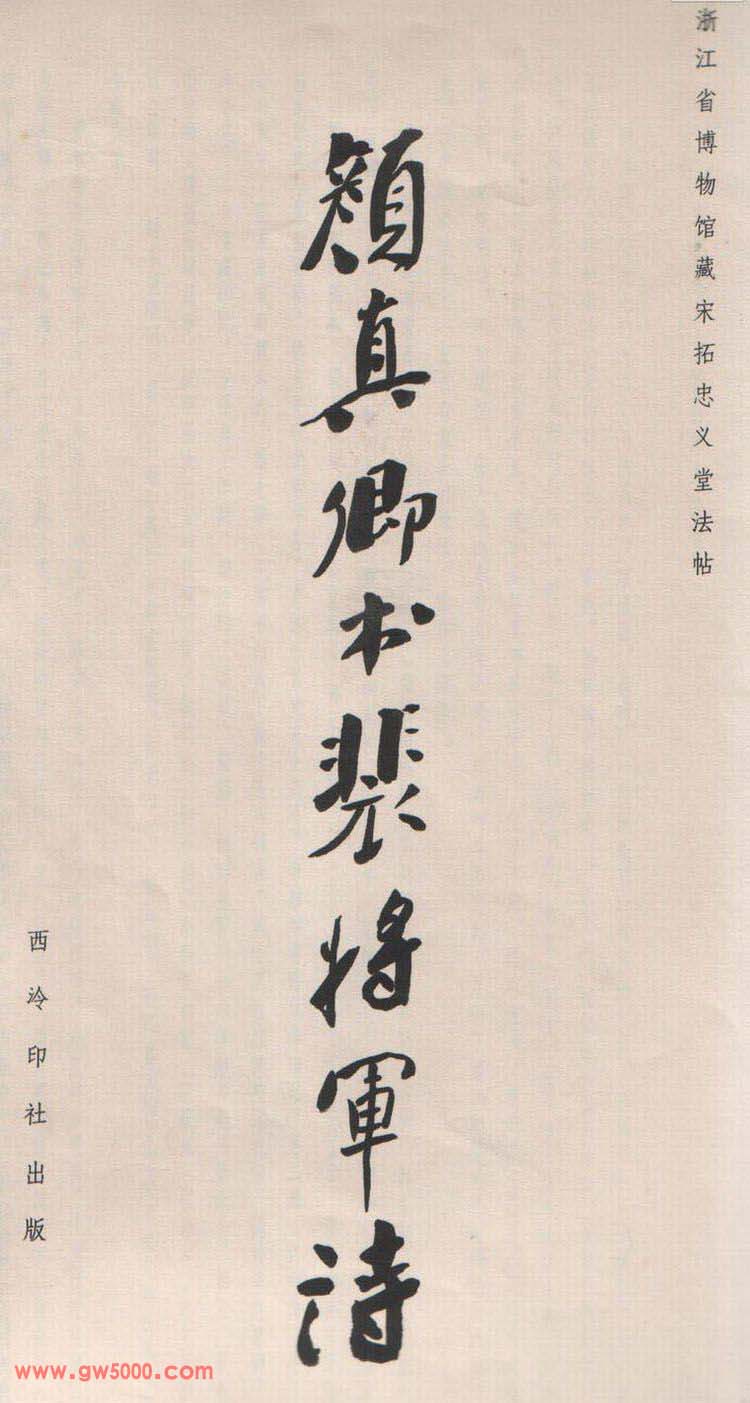 浙江省博物馆藏宋拓忠义堂法帖
顔真卿书裴将軍诗
西泠印社出版
www.gw5000.com